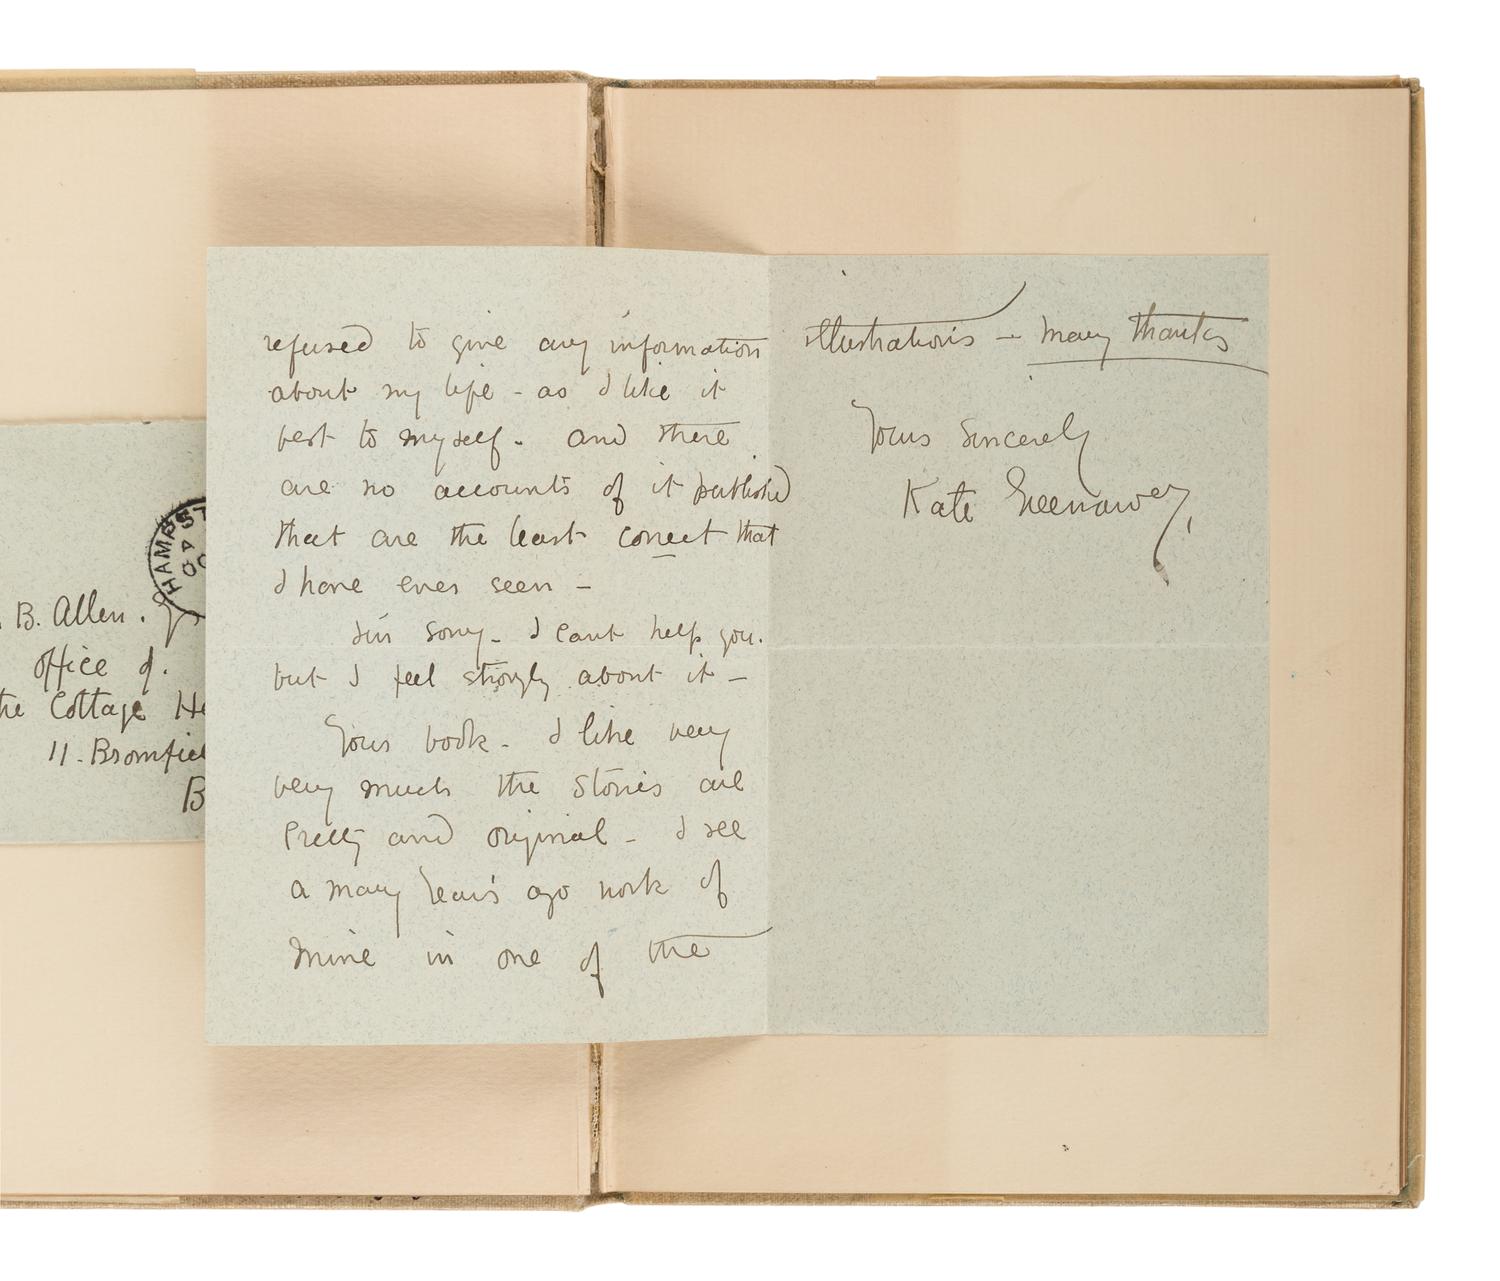 refused to give any information
about my life - as I like it
best to myself. and there
are no accounts of it published
that are the least correct that
I have ever seen -
I'm sorry - I cant help you.
but I feel strongly about it -
Your book - I like very
very much the stories are
Pretty and original - I see
a many Years ago work of
mine in one of the
illustrations - many thanks
Yours Sincerely
Kate Greenaway,
HAMPST
B. Allen.
office of.
the Cottage
11. Bromfiel
B